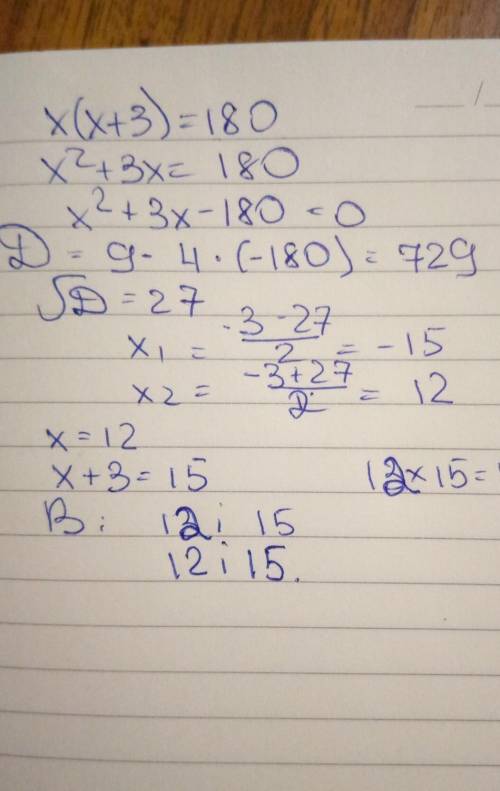 x(x+3)=180
x²+3x= 180
x²+3x-180=0
D = 9- 4·(-180)= 729
√D = 27
x₁ = (-3-27)/2 = -15
x₂ = (-3+27)/2 = 12
x=12
x+3=15 12×15=
В: 12 і 15
12 і 15.